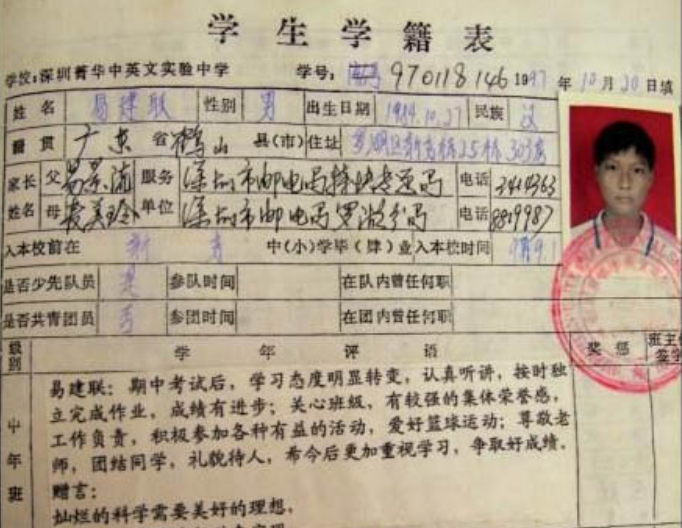 学生学籍表
学校：深圳菁华中英文实验中学 学号： 970118146 1997年10月20日填
姓名 易建联 性别 男 出生日期 1984.10.27 民族 汉
籍贯 广东省鹤山县(市) 住址 罗湖区新秀村25栋303房
家长姓名 父 易景流 服务单位 深圳市邮电局特快专递局 电话 3414363
母 麦美玲 深圳市邮电局罗湖分局 电话 8819987
入本校前在 新秀 中(小)学毕(肄)业 入本校时间
是否少先队员 是 参队时间 在队内曾任何职
是否共青团员 否 参团时间 在团内曾任何职
级别 学年评语 奖惩 班主任签字
中年班
易建联：期中考试后，学习态度明显转变，认真听讲，按时独
立完成作业，成绩有进步；关心班级，有较强的集体荣誉感，
工作负责，积极参加各种有益的活动，爱好篮球运动；尊敬老
师，团结同学，礼貌待人，希今后更加重视学习，争取好成绩。
赠言：
灿烂的科学需要美好的理想，